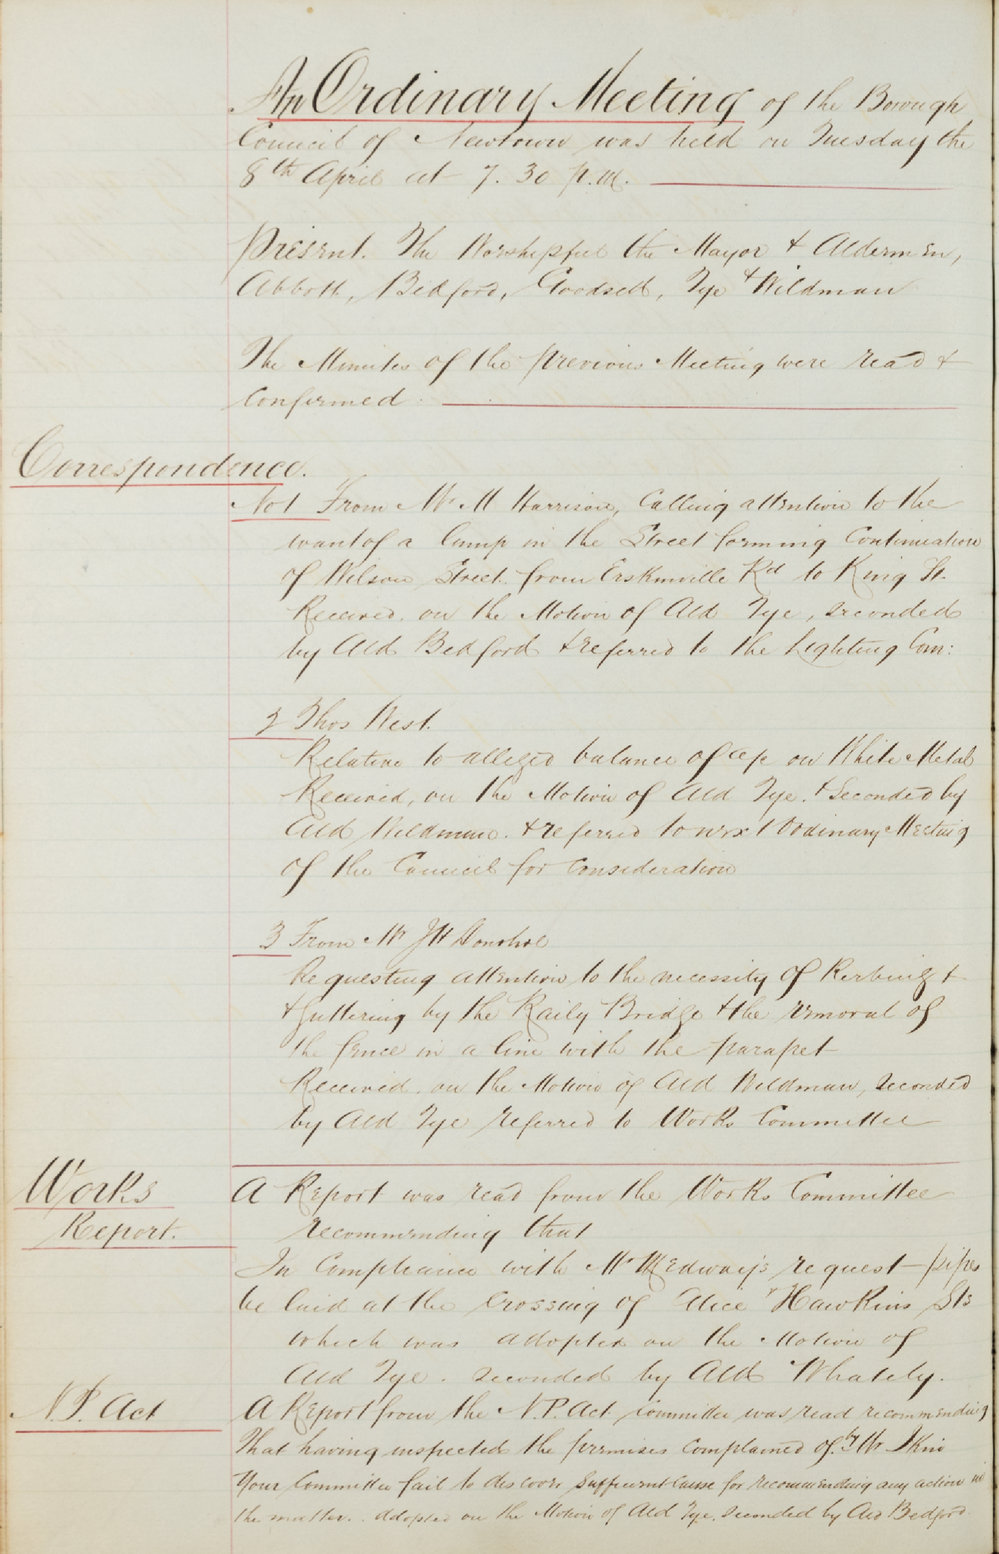 An Ordinary Meeting of the Borough
Council of Newtown was held on Tuesday the
8th April at 7.30 p.m.
Present. The Worshipful the Mayor & Aldermen,
Abbott, Bedford, Goodsell, Tye & Wildman
The Minutes of the previous Meeting were read &
Confirmed
Correspondence.
No 1 From Mr M Harrison, Calling attention to the
want of a lamp in the Street forming Continuation
of Wilson Street from Erskinville Rd to King St.
Received on the Motion of Ald Tye, seconded
by Ald Bedford & referred to the Lighting Com:
2 Thos West.
Relative to alleged balance of a/c on White Metal
Received, on the Motion of Ald Tye. & Seconded by
Ald Wildman. & referred to next Ordinary Meeting
of the Council for Consideration
3 From Mr J H Donohoe
Requesting attention to the necessity of Kerbing &
& Guttering by the Raily Bridge & the removal of
the fence in a line with the parapet
Received. on the Motion of Ald Wildman, seconded
by Ald Tye referred to Works Committee
Works
Report.
A Report was read from the Works Committee
recommending that
In Compliance with Mr Medway's request pipes
be laid at the Crossing of Alice & Hawkins Sts
which was adopted on the Motion of
Ald Tye. seconded by Ald Whately.
N.P. Act
A Report from the N.P. Act Committee was read recommending
That having inspected the premises Complained of by Mr
Your Committee fail to discover sufficient Cause for recommending any action in
the matter. adopted on the Motion of Ald Tye, seconded by Ald Bedford.